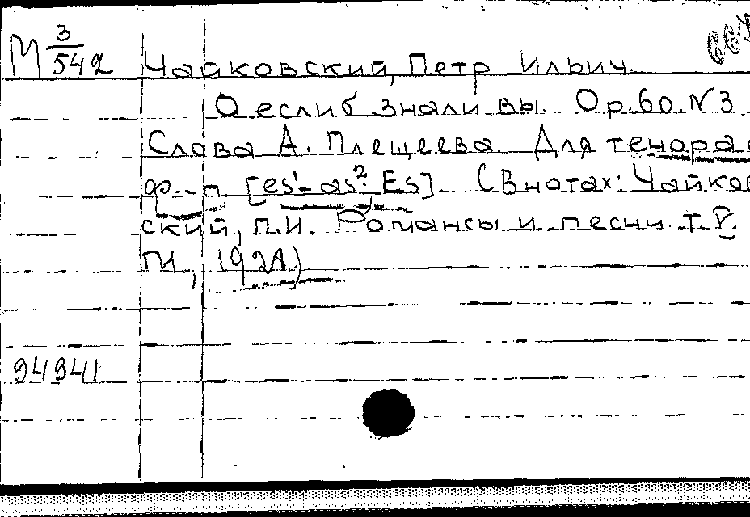 М 3/542 Чайковский, Петр Ильич
О еслиб знали вы. Op. 60. N 3
Слова А. Плещеева. Для тенора
ф.-п [es'-as²; Es]. (В нотах: Чайков
ский, П.И. Романсы и песни. Т. V.
М., 1921)
94941